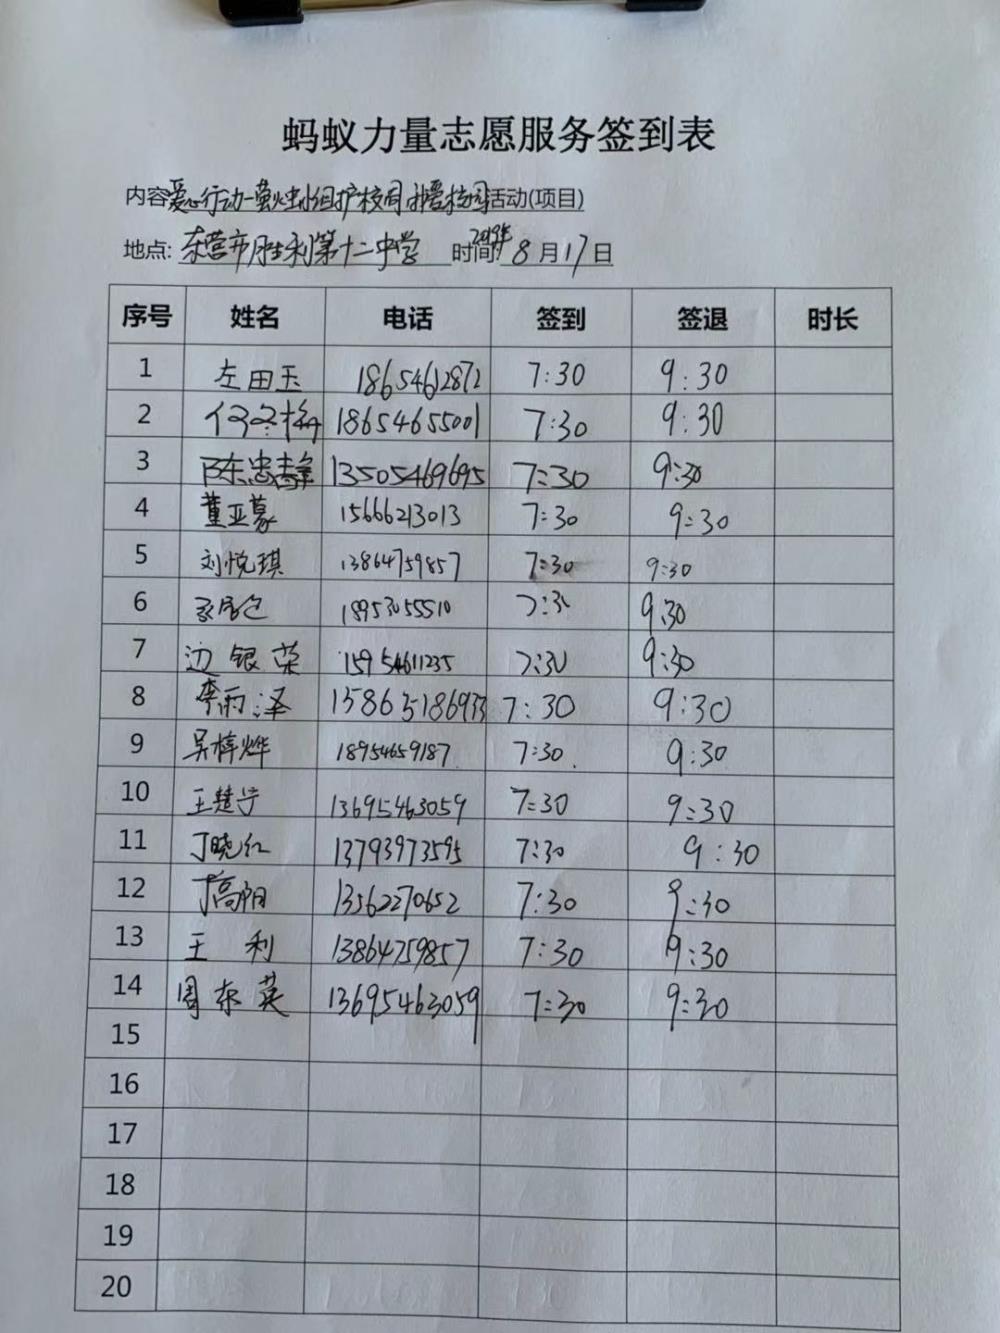 蚂蚁力量志愿服务签到表
内容 爱心行动-萤火虫小组护校园 活动(项目)
地点: 东营市胜利第十二中学 时间: 8月17日
序号 姓名 电话 签到 签退 时长
1 左田玉 18654612872 7:30 9:30
2 18654655001 7:30 9:30
3 陈忠静 13505469695 7:30 9:30
4 董亚蒙 15666213013 7:30 9:30
5 刘悦琪 13864759857 7:30 9:30
6 18953055510 7:30 9:30
7 边银荣 15954611235 7:30 9:30
8 李雨泽 15863518693 7:30 9:30
9 吴梓烨 18954659187 7:30 9:30
10 王楚宁 13695463059 7:30 9:30
11 丁晓红 13793973595 7:30 9:30
12 丁高阳 13562270652 7:30 9:30
13 王利 13864759857 7:30 9:30
14 周东英 13695463059 7:30 9:30
15
16
17
18
19
20